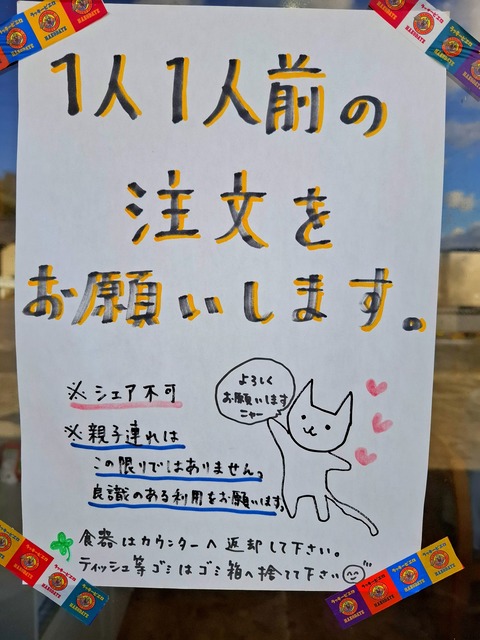 1人1人前の
注文を
お願いします。
※シェア不可
※親子連れは
この限りではありません。
良識のある利用をお願います。
よろしく
お願いします
ニャー
食器はカウンターへ返却して下さい。
ティッシュ等ゴミはゴミ箱へ捨てて下さい
ラッキーピエロ
HAKODATE